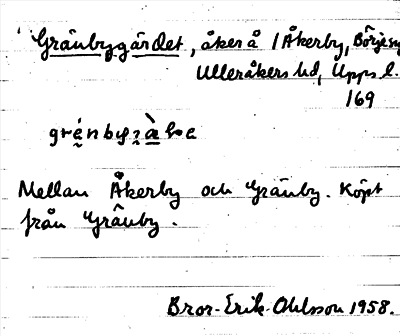 Gränbygärdet, åker å / Åkerby, Börje sn
Ulleråkers hd, Uppl.
169
Mellan Åkerby och Gränby. Köpt
från Gränby.
Bror-Erik Ohlsson 1958.